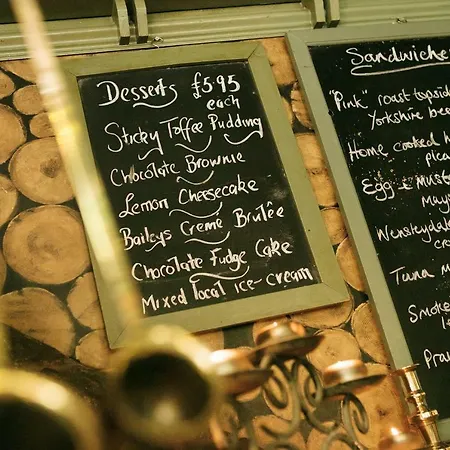 Desserts £5.95
each
Sticky Toffee Pudding
Chocolate Brownie
Lemon Cheesecake
Baileys Creme Brulêe
Chocolate Fudge Cake
Mixed local ice-cream
Sandwiche
"Pink" roast topsid
Yorkshire bee
Home cooked h
Egg & must
May
Wensleydal
Tuna m
Smoke
Pra